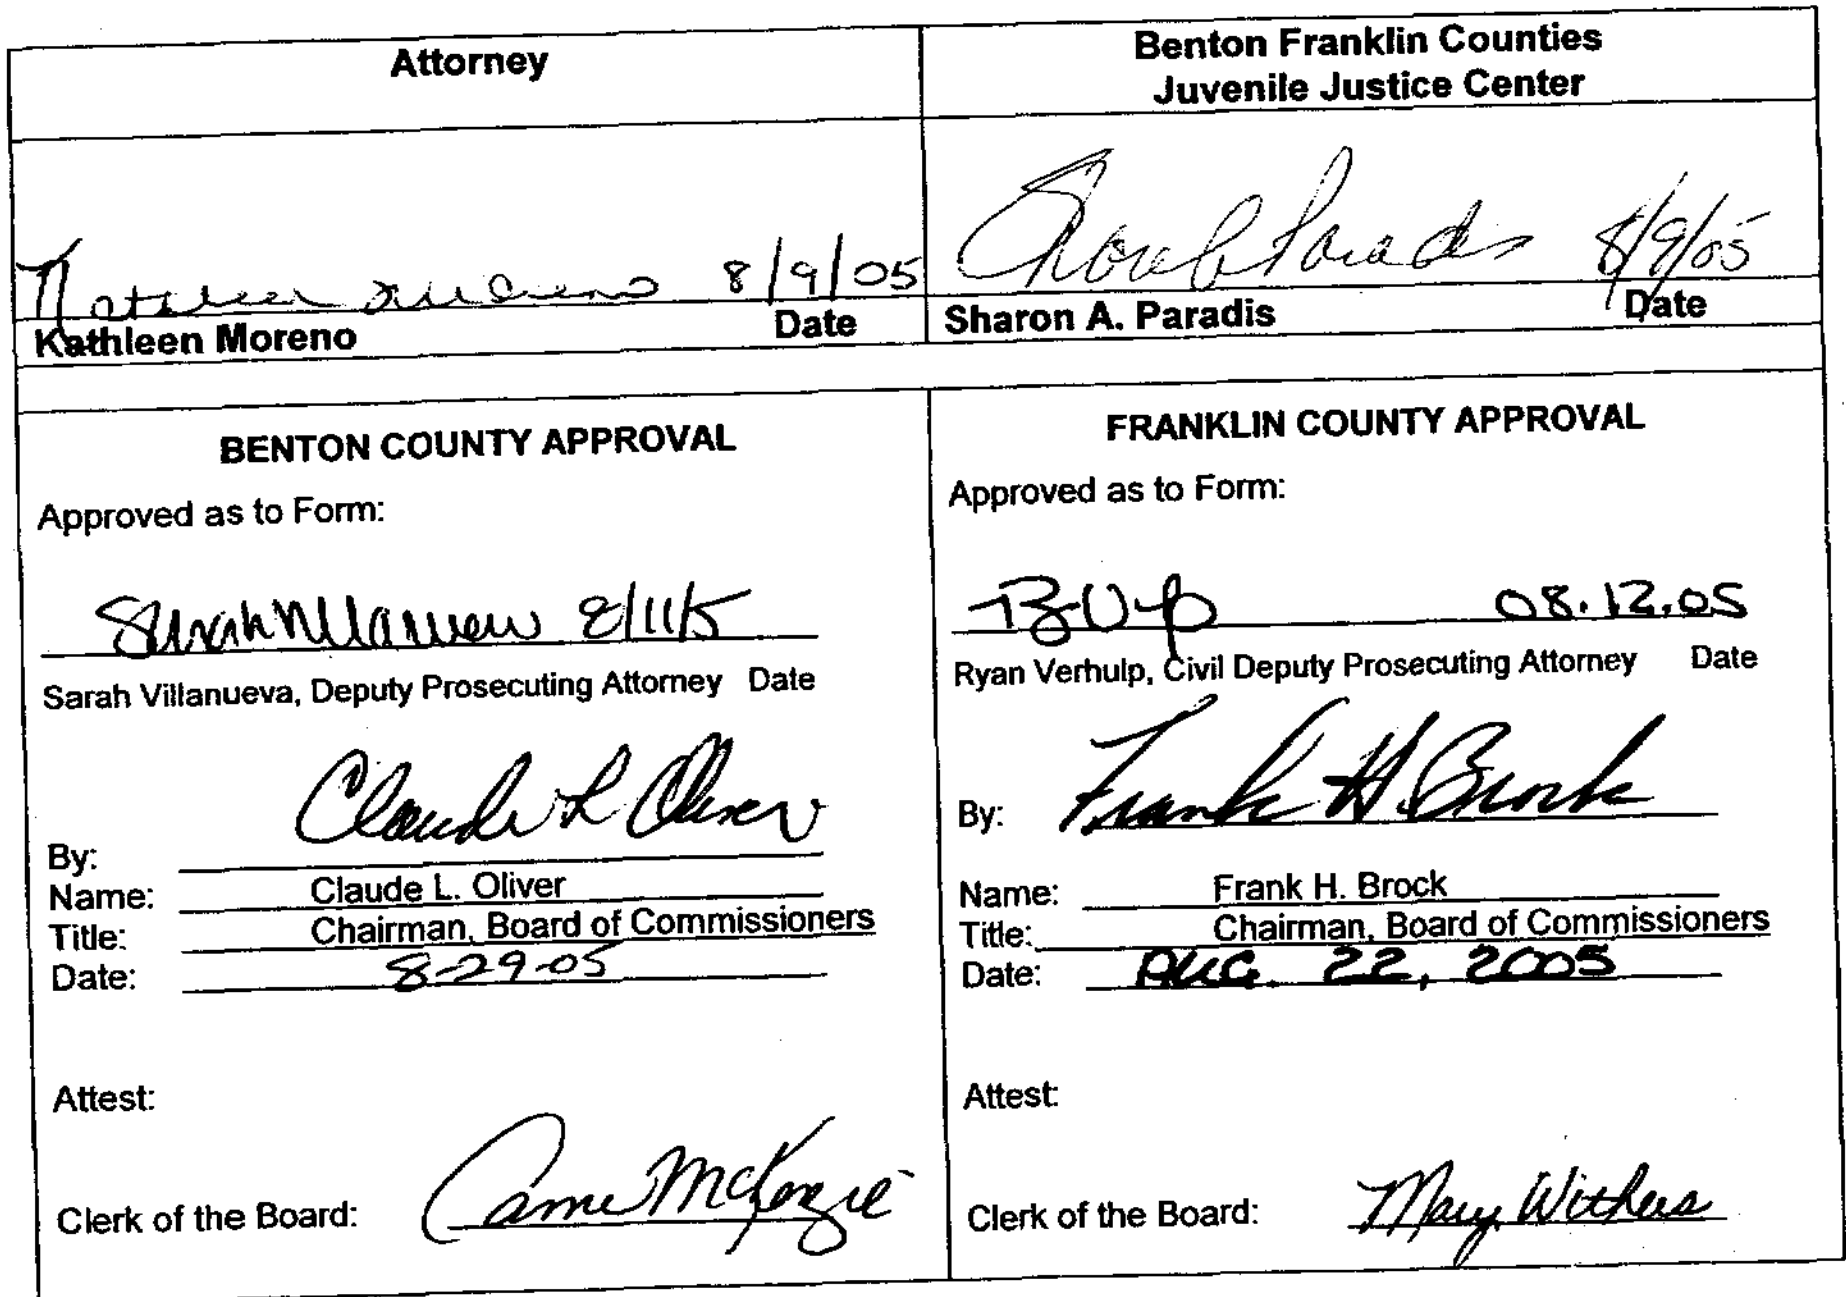 Attorney
Benton Franklin Counties
Juvenile Justice Center
Kathleen Moreno 8/9/05
Sharon A Paradis 8/9/05
Kathleen Moreno Date
Sharon A. Paradis Date
BENTON COUNTY APPROVAL
Approved as to Form:
Sarah Villanueva 8/11/5
Sarah Villanueva, Deputy Prosecuting Attorney Date
Claude L Oliver
By:
Name: Claude L. Oliver
Title: Chairman, Board of Commissioners
Date: 8-29-05
Attest:
Clerk of the Board: McKenzie
FRANKLIN COUNTY APPROVAL
Approved as to Form:
08.12.05
Ryan Verhulp, Civil Deputy Prosecuting Attorney Date
By: Frank H. Brock
Name: Frank H. Brock
Title: Chairman, Board of Commissioners
Date: AUG. 22, 2005
Attest:
Clerk of the Board: Mary Withers